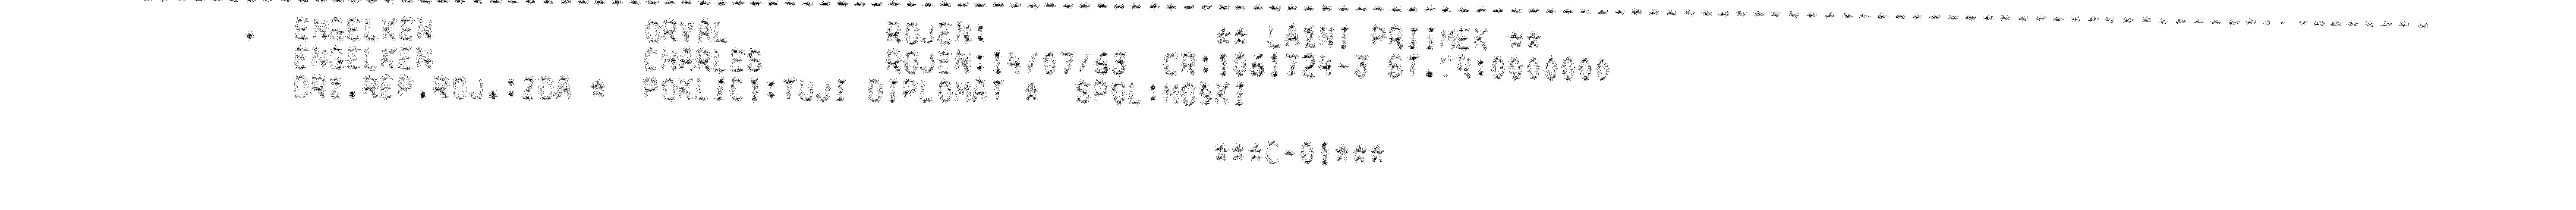 ENGELKEN ORVAL ROJEN: ** LAZNI PRIIMEK **
ENGELKEN CHARLES ROJEN:14/07/63 CR:1061724-3 ST.CR:0000000
DRZ.REP.ROJ.:ZDA * POKLICI:TUJI DIPLOMAT * SPOL:MOSKI
***C-01***